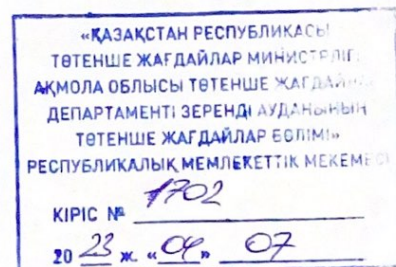 «ҚАЗАҚСТАН РЕСПУБЛИКАСЫ
ТӨТЕНШЕ ЖАҒДАЙЛАР МИНИСТРЛІГІ
АҚМОЛА ОБЛЫСЫ ТӨТЕНШЕ ЖАҒДАЙЛАР
ДЕПАРТАМЕНТІ ЗЕРЕНДІ АУДАНЫНЫҢ
ТӨТЕНШЕ ЖАҒДАЙЛАР БӨЛІМІ»
РЕСПУБЛИКАЛЫҚ МЕМЛЕКЕТТІК МЕКЕМЕСІ
КІРІС № 1702
20 23 ж. «04» 07